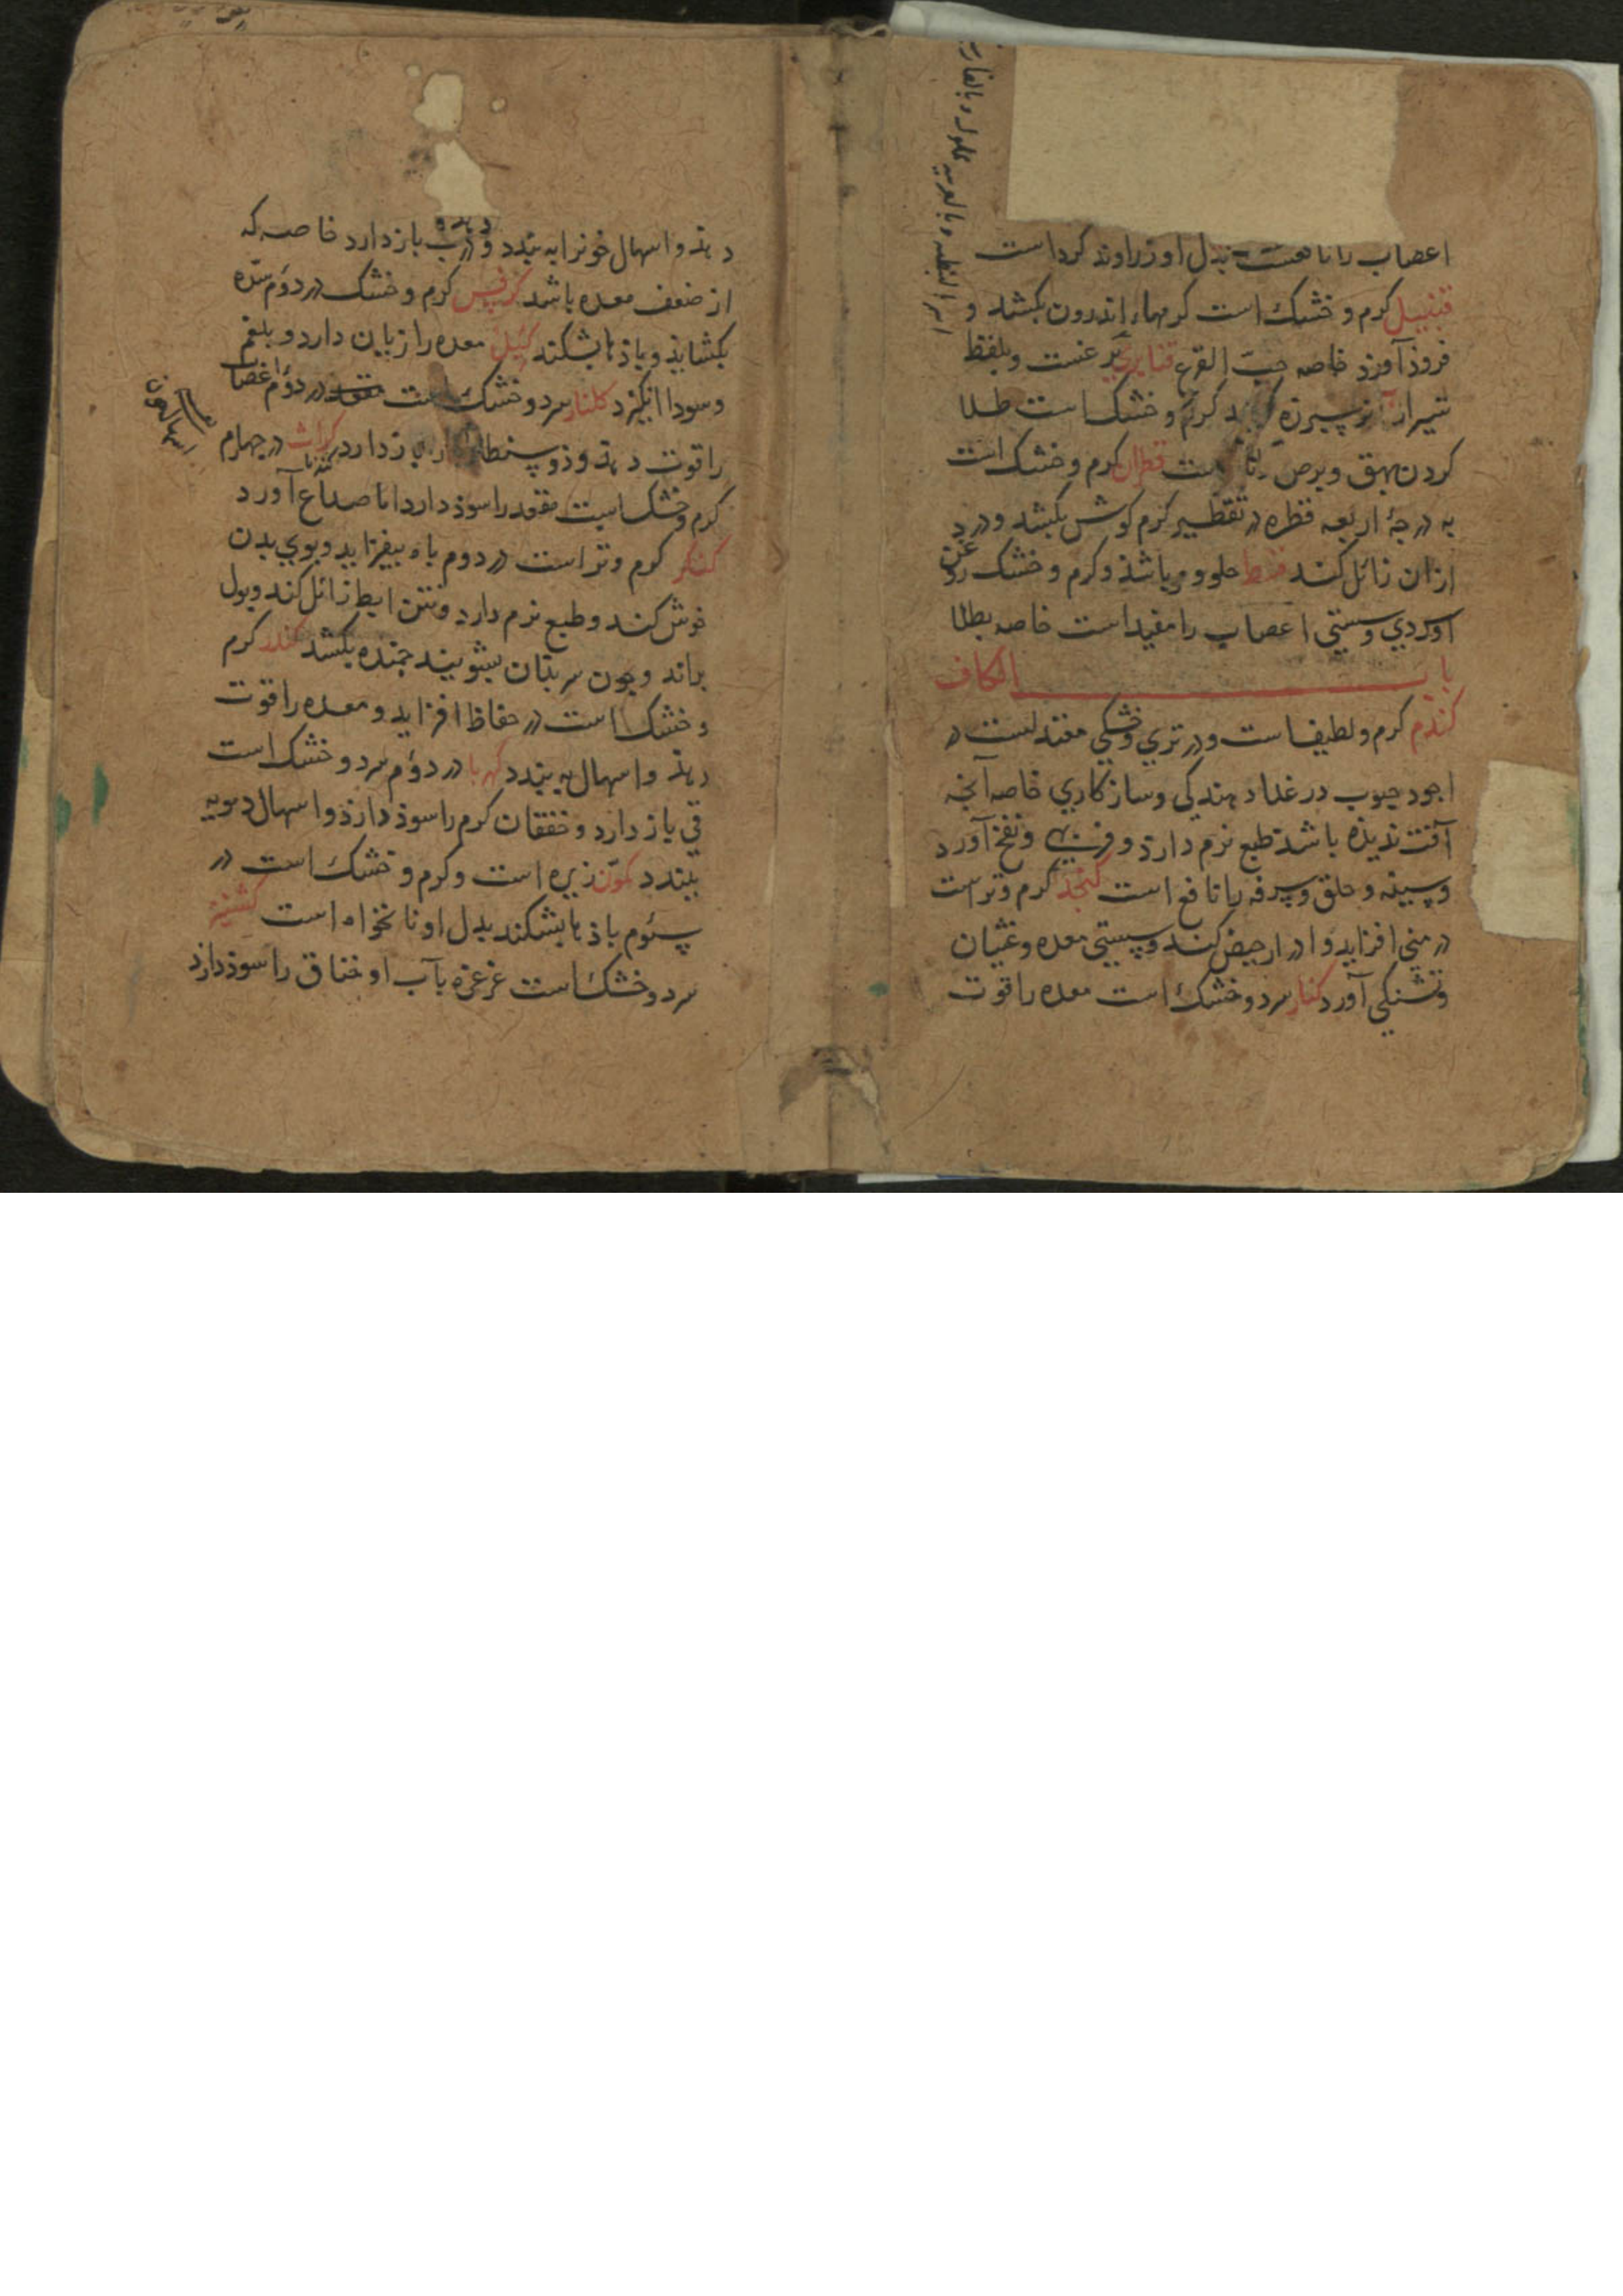 اعصاب را نافعست بدل او زراوند کرد است
قنبیل کرم و خشک است کرمهاء اندرون بکشد و
فروذ آورد خاصه حبّ القرع قنابری بر غست و بلفظ
شیراز آنر کرم و خشک است طلا
کردن بهق و برص قطران کرم و خشک است
به درجهٔ اربعه قطره در تقطیر کرم کوش بکشد و درد
ازان زائل کند قسط حلو و مر باشد و کرم و خشک
اوردی و سستی اعصاب را مفید است خاصه بطلا
باب الکاف
کندم کرم و لطیف است و در تری و خشکی معتدلست در
اجود حبوب در غذا دهندکی و سازکاری خاصه آنچه
آفت ندیده باشد طبع نرم دارد و فربهی و نفخ آورد
و سینه و حلق و سرفه را نافع است کنجد کرم و تر است
در منی افزاید و ادرار حیض کند و سستی معده و غثیان
و تشنکی آورد کنار سرد و خشک است معده را قوت
دهذ و اسهال خونرا به بندد و درب باز دارد خاصه که
از ضعف معده باشد کرفس کرم و خشک در دوم سدّه
بکشاید و باذها بشکند معده را زیان دارد و بلغم
و سودا انکیزد کلنار سرد و خشک است در دوم اعصاب
را قوت دهد و باز دارد کراث در چهارم
کندنا
کرم و خشک است مقعد را سوذ دارد اما صداع آورد
کنکر کرم و تر است در دوم باه بیفزاید و بوی بدن
خوش کند و طبع نرم دارد و نتن ابط زائل کند و بول
براند و چون سر بدان بشویند جمنده بکشد کندر کرم
و خشک است در حفاظ افزاید و معده را قوت
دهذ و اسهال به بندد کهربا در دوم سرد و خشک است
قی باز دارد و خفقان کرم را سوذ دارذ و اسهال دمویه
ببندد کمّون زیره است و کرم و خشک است در
سئوم باذها بشکند بدل او نانخواه است کشنیز
سرد و خشک است غرغره بآب او خناق را سوذ دارد